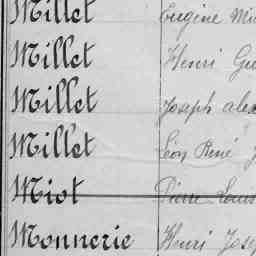 Millet Eugène
Millet Henri
Millet Joseph
Millet Léon René
Miot Pierre Louis
Monnerie Henri